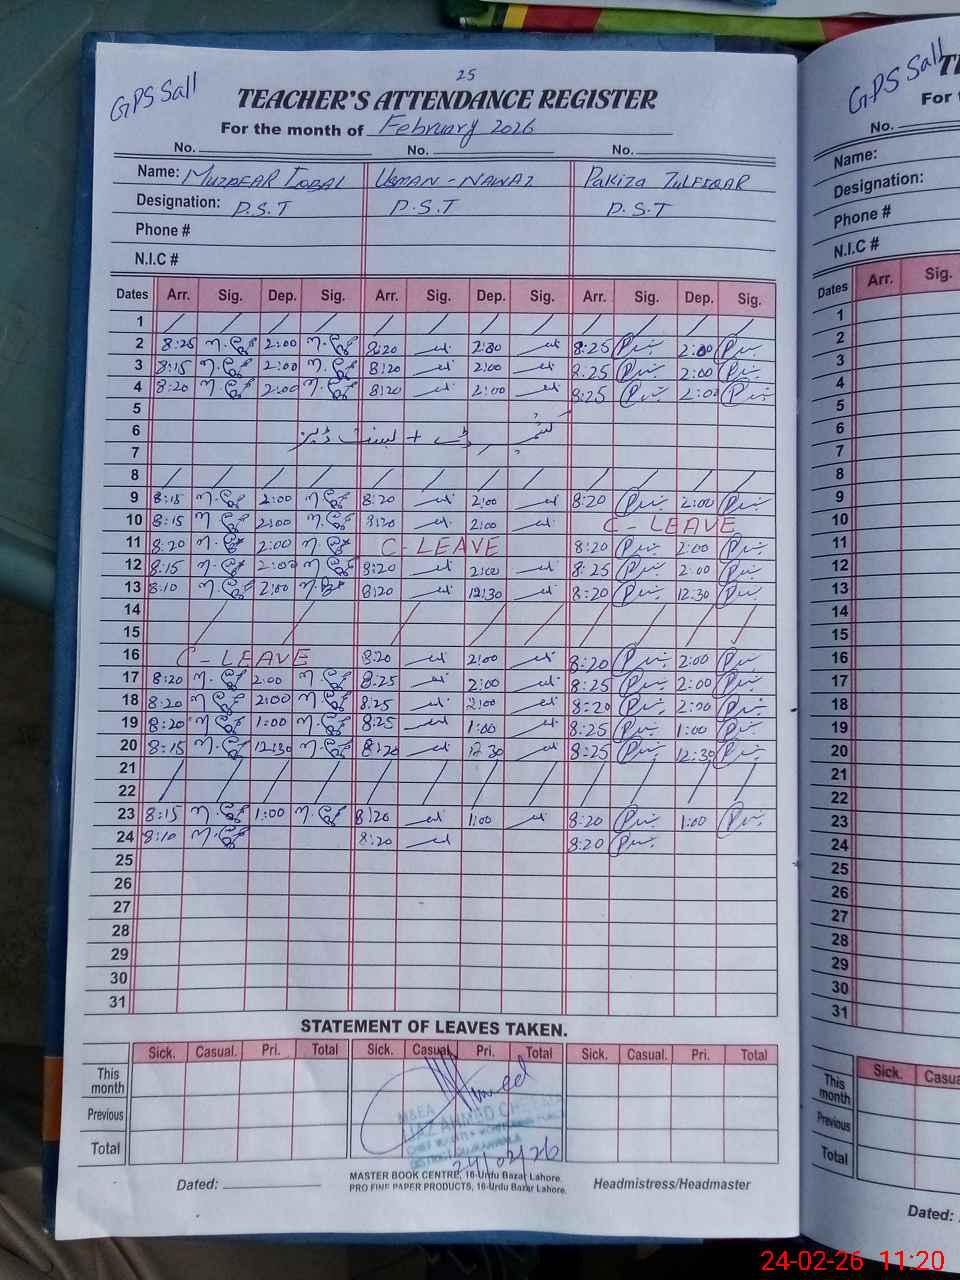 25
GPS Sall
TEACHER'S ATTENDANCE REGISTER
For the month of February 2026
No. No. No.
Name: MUZAFAR IQBAL USMAN - NAWAZ PAKIZA ZULFIQAR
Designation: P.S.T P.S.T P.S.T
Phone #
N.I.C #
Dates Arr. Sig. Dep. Sig. Arr. Sig. Dep. Sig. Arr. Sig. Dep. Sig.
1
2 8:25 2:00 8:20 2:00 8:25 2:00
3 8:15 2:00 8:20 2:00 8:25 2:00
4 8:20 2:00 8:20 2:00 8:25 2:00
5
6 کشمیر ڈے + بسنت ڈیز
7
8
9 8:15 2:00 8:20 2:00 8:20 2:00
10 8:15 2:00 8:20 2:00 C - LEAVE
11 8:20 2:00 C - LEAVE 8:20 2:00
12 8:15 2:00 8:20 2:00 8:25 2:00
13 8:10 2:00 8:20 12:30 8:20 12:30
14
15
16 C - LEAVE 8:20 2:00 8:20 2:00
17 8:20 2:00 8:25 2:00 8:25 2:00
18 8:20 2:00 8:25 2:00 8:20 2:00
19 8:20 1:00 8:25 1:00 8:25 1:00
20 8:15 12:30 8:20 12:30 8:25 12:30
21
22
23 8:15 1:00 8:20 1:00 8:20 1:00
24 8:10 8:20 8:20
25
26
27
28
29
30
31
STATEMENT OF LEAVES TAKEN.
Sick. Casual. Pri. Total Sick. Casual. Pri. Total Sick. Casual. Pri. Total
This month
Previous
Total
M&EA
24/02/26
Dated:
MASTER BOOK CENTRE, 16-Urdu Bazar Lahore.
PRO FINE PAPER PRODUCTS, 16-Urdu Bazar Lahore.
Headmistress/Headmaster
GPS Sall
For
No.
Name:
Designation:
Phone #
N.I.C #
Dates Arr. Sig.
1
2
3
4
5
6
7
8
9
10
11
12
13
14
15
16
17
18
19
20
21
22
23
24
25
26
27
28
29
30
31
Sick.
This month
Previous
Total
Dated:
24-02-26 11:20